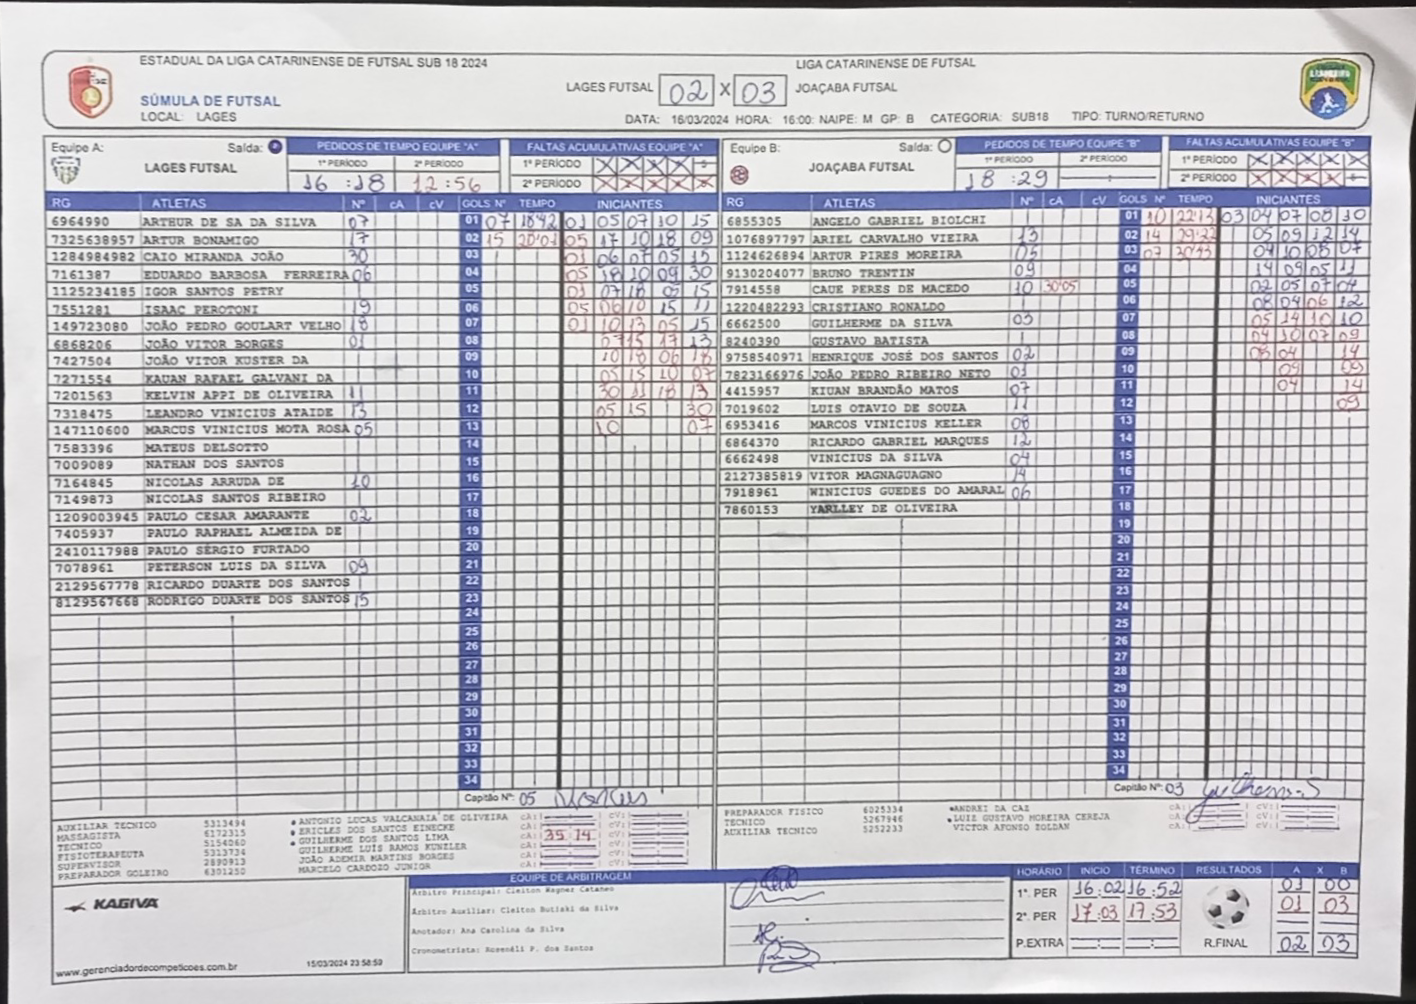 ESTADUAL DA LIGA CATARINENSE DE FUTSAL SUB 18 2024
LIGA CATARINENSE DE FUTSAL
SÚMULA DE FUTSAL
LOCAL: LAGES
LAGES FUTSAL 02 X 03 JOAÇABA FUTSAL
DATA: 16/03/2024 HORA: 16:00: NAIPE: M GP: B CATEGORIA: SUB18 TIPO: TURNO/RETURNO
Equipe A: Saída:
LAGES FUTSAL
PEDIDOS DE TEMPO EQUIPE "A"
1º PERÍODO 2º PERÍODO
16:18 12:56
FALTAS ACUMULATIVAS EQUIPE "A"
1º PERÍODO X X X X 5
2º PERÍODO X X X X X
RG ATLETAS Nº cA cV GOLS Nº TEMPO INICIANTES
6964990 ARTHUR DE SA DA SILVA 07 01 07 18:42 01 05 07 10 15
7325638957 ARTUR BONAMIGO 17 02 15 20:01 05 17 10 18 09
1284984982 CAIO MIRANDA JOÃO 30 03 01 06 07 05 15
7161387 EDUARDO BARBOSA FERREIRA 06 04 05 18 10 09 30
1125234185 IGOR SANTOS PETRY 05 01 07 18 05 15
7551281 ISAAC PEROTONI 19 06 05 06 10 15 11
149723080 JOÃO PEDRO GOULART VELHO 18 07 01 10 13 05 15
6868206 JOÃO VITOR BORGES 01 08 07 15 17 13
7427504 JOÃO VITOR KUSTER DA 09 10 18 06 18
7271554 KAUAN RAFAEL GALVANI DA 10 05 15 10 07
7201563 KELVIN APPI DE OLIVEIRA 11 11 30 11 18 13
7318475 LEANDRO VINICIUS ATAIDE 13 12 05 15 30
147110600 MARCUS VINICIUS MOTA ROSA 05 13 10 07
7583396 MATEUS DELSOTTO 14
7009089 NATHAN DOS SANTOS 15
7164845 NICOLAS ARRUDA DE 10 16
7149873 NICOLAS SANTOS RIBEIRO 17
1209003945 PAULO CESAR AMARANTE 02 18
7405937 PAULO RAPHAEL ALMEIDA DE 19
2410117988 PAULO SÉRGIO FURTADO 20
7078961 PETERSON LUIS DA SILVA 09 21
2129567778 RICARDO DUARTE DOS SANTOS 22
8129567668 RODRIGO DUARTE DOS SANTOS 15 23
24
25
26
27
28
29
30
31
32
33
34
Capitão Nº: 05 Marcus
Equipe B: Saída:
JOAÇABA FUTSAL
PEDIDOS DE TEMPO EQUIPE "B"
1º PERÍODO 2º PERÍODO
18:29
FALTAS ACUMULATIVAS EQUIPE "B"
1º PERÍODO X X X X X
2º PERÍODO X X X X 5
RG ATLETAS Nº cA cV GOLS Nº TEMPO INICIANTES
6855305 ANGELO GABRIEL BIOLCHI 01 10 22:13 03 04 07 08 10
1076897797 ARIEL CARVALHO VIEIRA 13 02 14 29:22 05 09 12 14
1124626894 ARTUR PIRES MOREIRA 05 03 07 30:43 04 10 08 07
9130204077 BRUNO TRENTIN 09 04 14 09 05 11
7914558 CAUE PERES DE MACEDO 10 30:05 05 02 05 07 04
1220482293 CRISTIANO RONALDO 06 08 04 06 12
6662500 GUILHERME DA SILVA 03 07 05 14 10 10
8240390 GUSTAVO BATISTA 08 04 10 07 09
9758540971 HENRIQUE JOSÉ DOS SANTOS 02 09 08 04 14
7823166976 JOÃO PEDRO RIBEIRO NETO 01 10 09 09
4415957 KIUAN BRANDÃO MATOS 07 11 04 14
7019602 LUIS OTAVIO DE SOUZA 11 12 09
6953416 MARCOS VINICIUS KELLER 08 13
6864370 RICARDO GABRIEL MARQUES 12 14
6662498 VINICIUS DA SILVA 04 15
2127385819 VITOR MAGNAGUAGNO 14 16
7918961 WINICIUS GUEDES DO AMARAL 06 17
7860153 YARLLEY DE OLIVEIRA 18
19
20
21
22
23
24
25
26
27
28
29
30
31
32
33
34
Capitão Nº: 03 Guilherme S
AUXILIAR TECNICO 5313494 ANTONIO LUCAS VALCANAIA DE OLIVEIRA cA: cV:
MASSAGISTA 6172315 ERICLES DOS SANTOS EINECKE cA: cV:
TECNICO 5154060 GUILHERME DOS SANTOS LIMA cA: 35 14 cV:
FISIOTERAPEUTA 5313734 GUILHERME LUÍS RAMOS KUNZLER cA: cV:
SUPERVISOR 2890913 JOÃO ADEMIR MARTINS BORGES cA: cV:
PREPARADOR GOLEIRO 6301250 MARCELO CARDOZO JUNIOR
PREPARADOR FISICO 6025334 ANDREI DA CAZ cA: cV:
TECNICO 5267946 LUIZ GUSTAVO MOREIRA CEREJA cA: cV:
AUXILIAR TECNICO 5252233 VICTOR AFONSO ZOLDAN cA: cV:
KAGIVA
www.gerenciadordecompeticoes.com.br
15/03/2024 23:58:59
EQUIPE DE ARBITRAGEM
Árbitro Principal: Cleiton Wagner Cataneo
Árbitro Auxiliar: Cleiton Butiaki da Silva
Anotador: Ana Carolina da Silva
Cronometrista: Rosenéli P. dos Santos
HORÁRIO INÍCIO TÉRMINO RESULTADOS A X B
1º. PER 16:02 16:52 01 00
2º. PER 17:03 17:53 01 03
P.EXTRA R.FINAL 02 03